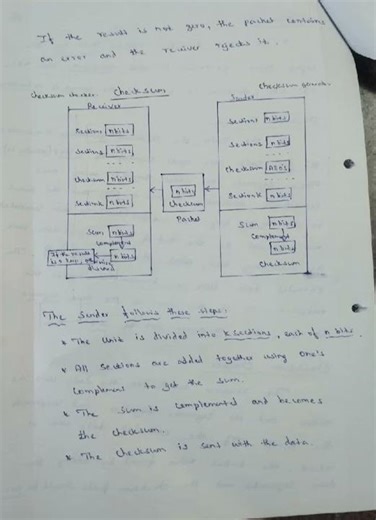 If the result is not zero, the packet contains
an error and the reciver rejects it.
checksum checker Checksum Checksum
Receiver Sender
Section1 n bits
Section2 n bits
Checksum n bits
...
Section k n bits
Sum n bits
Complement
n bits
If the result
n bits
Checksum
Packet
Section1 n bits
Section2 n bits
...
Checksum All 0's
...
Section k n bits
Sum n bits
Complement
n bits
Checksum
The Sender follows these steps:
* The Unit is divided into k sections, each of n bits.
* All Sections are added together using one's
Complement to get the Sum.
* The Sum is complemented and becomes
the checksum.
* The checksum is sent with the data.